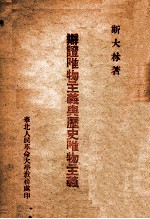 斯大林著
辯證唯物主義與歷史唯物主義
華北人民革命大學教務處印